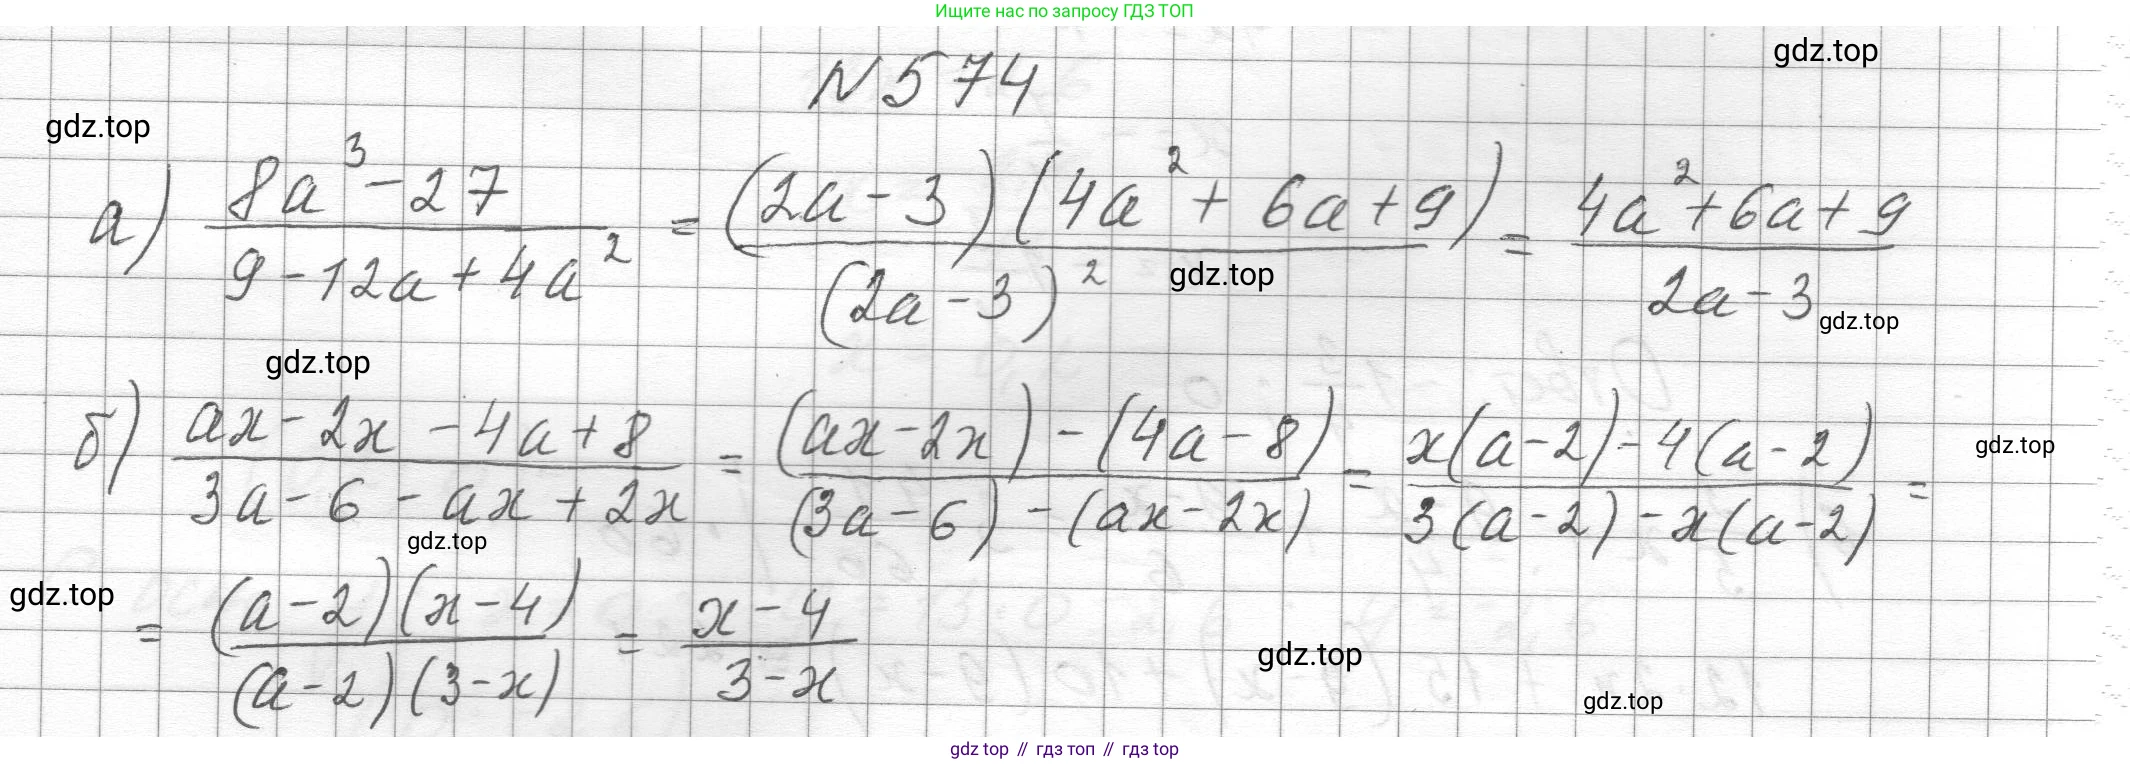 Ищите нас по запросу ГДЗ ТОП
gdz.top
N 574
gdz.top
а) (8a³ - 27)/(9 - 12a + 4a²) = ((2a - 3)(4a² + 6a + 9))/((2a - 3)²) = (4a² + 6a + 9)/(2a - 3)
gdz.top
gdz.top
gdz.top
б) (ax - 2x - 4a + 8)/(3a - 6 - ax + 2x) = ((ax - 2x) - (4a - 8))/((3a - 6) - (ax - 2x)) = (x(a - 2) - 4(a - 2))/(3(a - 2) - x(a - 2)) =
gdz.top
gdz.top
gdz.top
= ((a - 2)(x - 4))/((a - 2)(3 - x)) = (x - 4)/(3 - x)
gdz.top
gdz.top
gdz top // гдз топ // гдз top